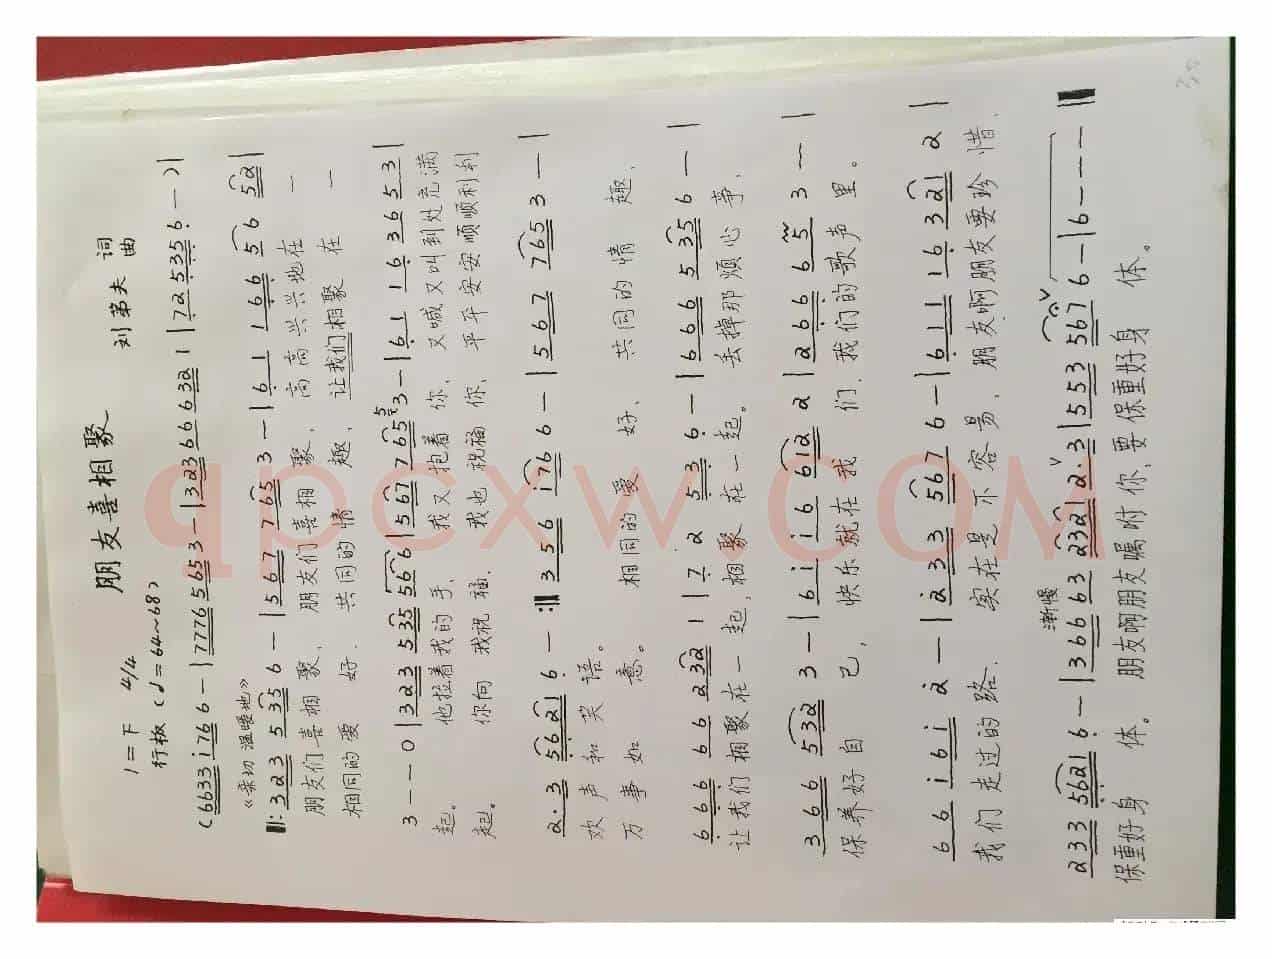 朋友喜相聚
1=F 4/4
行板 (♩=64~68)
刘弟夫 词曲
(6633 i766 - | 7776 5653 - | 323 66 6321 | 725356 - )|
《亲切 温暖地》
‖: 323 5356 - | 567 7653 - | 611 166 56 52 |
朋友们喜相聚, 朋友们喜相聚, 高高兴兴地在一
相同的爱好, 共同的情趣, 让我们相聚在一
3 - - 0 | 323 535566 | 567 7653 - | 611 163653 |
起。 他拉着我的手, 我又抱着你, 又喊又叫到处充满
起。 你向我祝福, 我也祝福你, 平平安安顺顺利利
2·3 56216 - :‖ 356 i766 - | 567 7653 - |
欢声和笑语。 相同的爱好, 共同的情趣,
万事如意。
666 66 2321 | 72 536 - | 666 5356 - |
让我们相聚在一起,相聚在一起。 丢掉那烦心事,
366 5323 - | 6ii i6 6122 | 266 653 - |
保养好自己, 快乐就在我们, 我们的歌声里。
66 i6i 2 - | 233 5676 - | 611 163212 |
我们走过的路, 实在是不容易, 朋友啊朋友要珍惜,
渐慢
233 56216 - | 366 63 2321 2·3 | 553 5676 - | 6 - - - ‖
保重好身体。 朋友啊朋友嘱咐你,要保重好身体。
qpcxw.COM